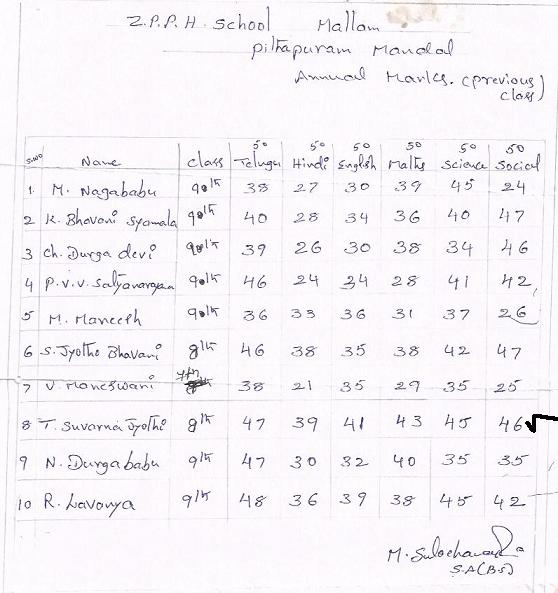 Z.P.P.H. School Mallam
pithapuram Mandal
Annual Marks. (previous class)
50 50 50 50 50 50
S.NO Name class Telugu Hindi English Maths Science Social
1. M. Nagababu 9th 38 27 30 39 45 24
2 K. Bhavani Syamala 9th 40 28 34 36 40 47
3 Ch. Durga devi 9th 39 26 30 38 34 46
4 P.V.V. Satyanarayana 9th 46 24 34 28 41 42
5 M. Maneesh 9th 36 33 36 31 37 26
6 S. Jyothi Bhavani 8th 46 38 35 38 42 47
7 V. Maneswani 7th 38 21 35 29 35 25
8 T. Suvarna Jyothi 8th 47 39 41 43 45 46
9 N. Durgababu 9th 47 30 32 40 35 35
10 R. Lavanya 9th 48 36 39 38 45 42
M.
S.A(B.S)